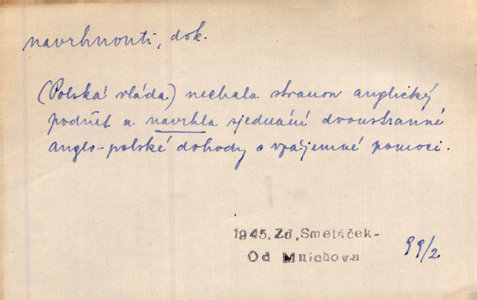 navrhnouti, dok.
(Polská vláda) nechala stranou anglický
podnět a navrhla sjednání dvoustranné
anglo-polské dohody o vzájemné pomoci.
1945, Zd. Smetáček-
Od Mnichova
99/2